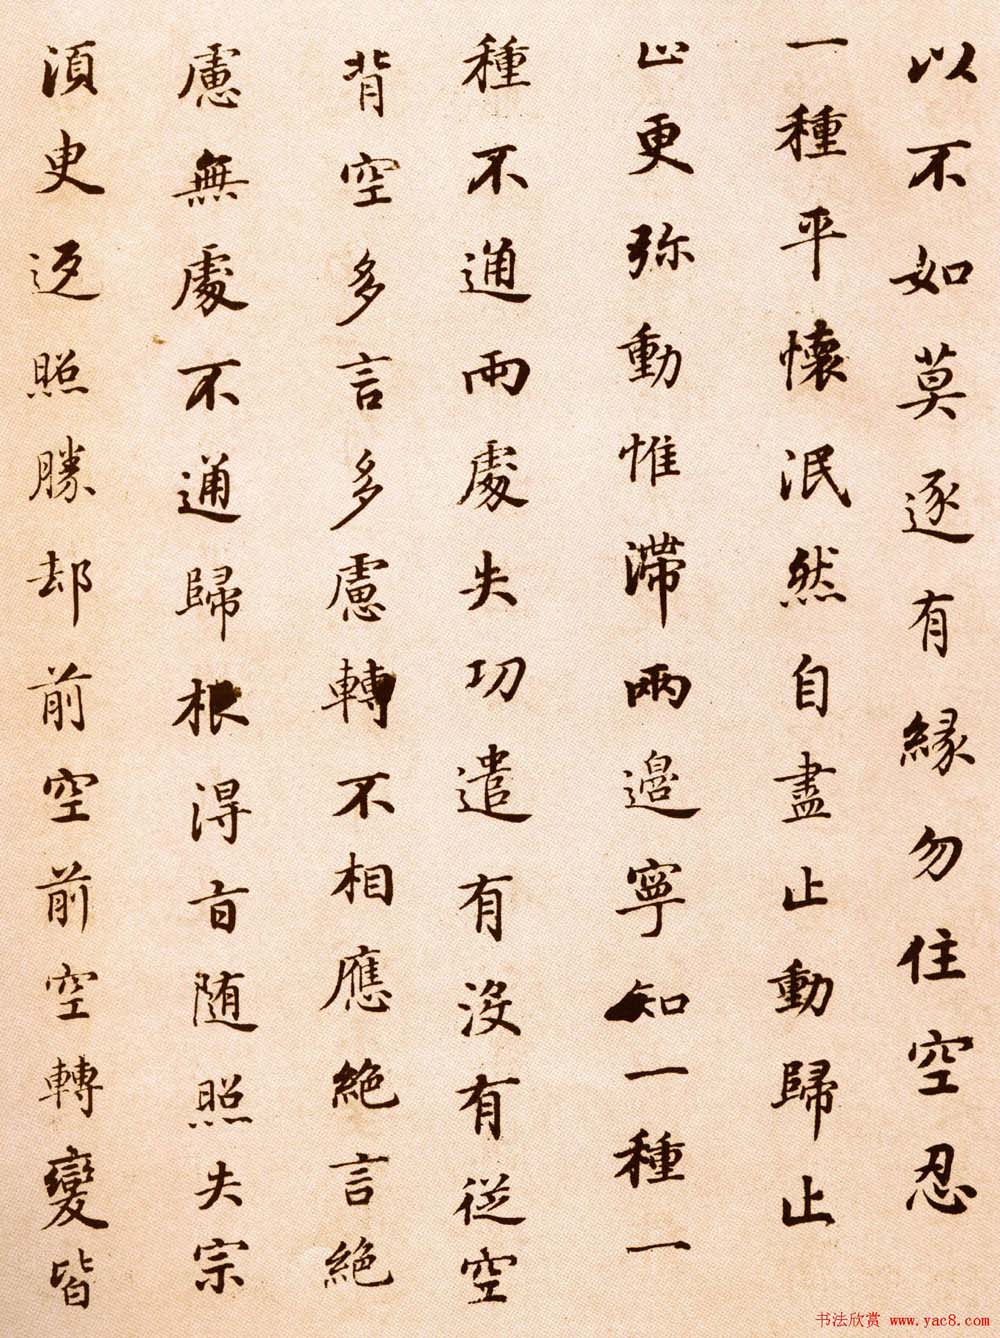 以不如莫逐有緣勿住空忍
一種平懷泯然自盡止動歸止
止更弥動惟滯兩邊寧知一種一
種不通兩處失功遣有沒有從空
背空多言多慮轉不相應絶言絶
慮無處不通歸根得旨随照失宗
須臾返照勝却前空前空轉變皆
书法欣赏 www.yac8.com